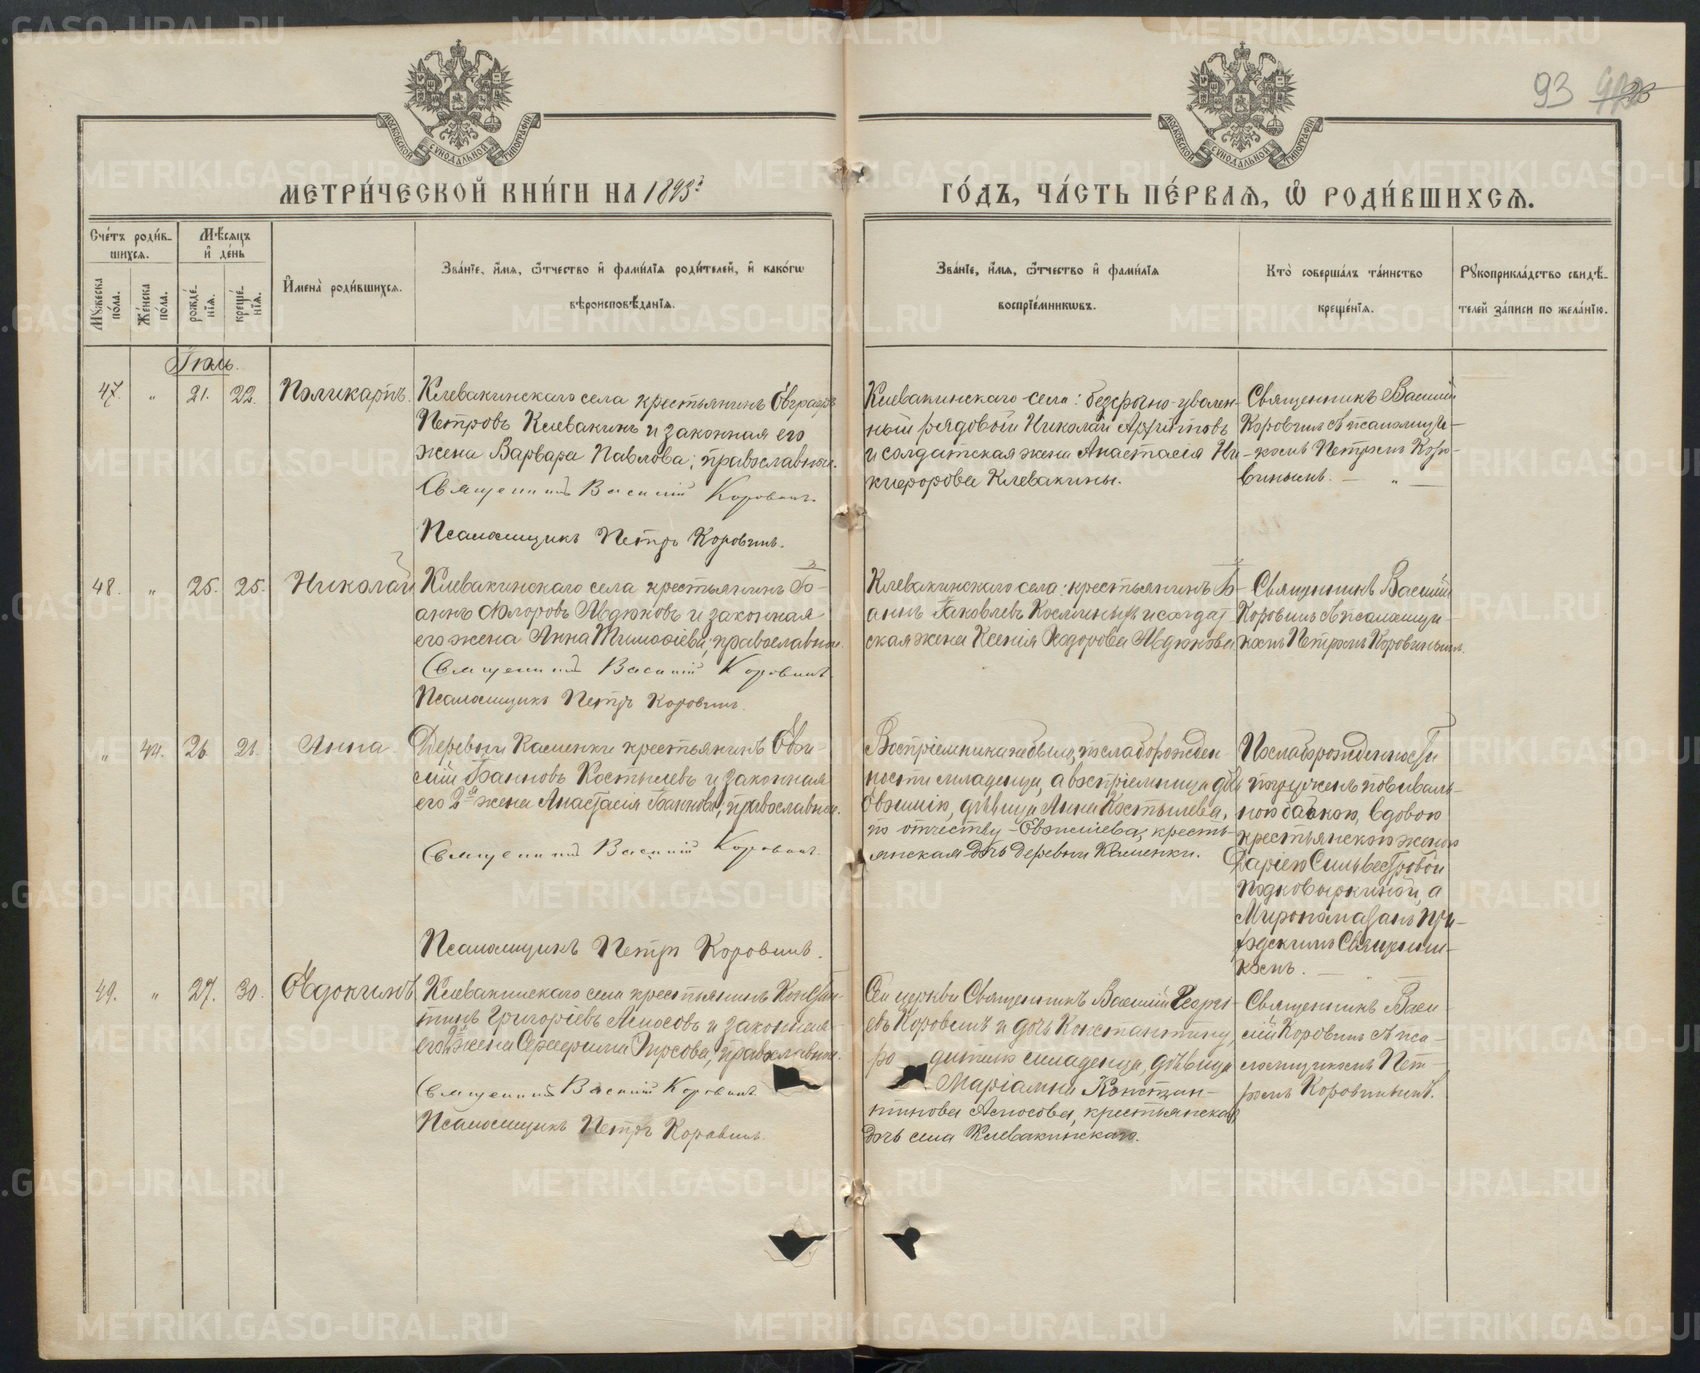 93
МОСКОВСКОЙ СУНОДАЛЬНОЙ ТИПОГРАФІИ
МОСКОВСКОЙ СУНОДАЛЬНОЙ ТИПОГРАФІИ
МЕТРИ́ЧЕСКОЙ КНИ́ГИ НА 1893й
ГО́ДЪ, ЧА́СТЬ ПЕ́РВАѦ, Ѡ҆ РОДИ́ВШИХСѦ.
Сче́тъ роди́в-
шихсѧ.
Мꙋжеска по́ла.
Же́нска по́ла.
Мѣ́сѧцъ
и҆ де́нь
рожде́-
нїѧ.
креще́-
нїѧ.
И҆мена̀ роди́вшихсѧ.
Зва́нїе, и҆́мѧ, ѻ҆́тчество и҆ фами́лїѧ роди́телей, и҆ како́гѡ
вѣроисповѣ́данїѧ.
Зва́нїе, и҆́мѧ, ѻ҆́тчество и҆ фами́лїѧ
воспрїе́мникѡвъ.
Кто̀ соверша́лъ та́инство
креще́нїѧ.
Рꙋкоприкла́дство свидѣ́-
телей за́писи по жела́нїю.
Іюль.
47. " 21. 22. Поликарпъ.
Клевакинскаго села крестьянинъ Евграфъ
Петровъ Клевакинъ и законная его
жена Варвара Павлова; православные.
Священникъ Василій Коровинъ.
Псаломщикъ Петръ Коровинъ.
Клевакинскаго села: безсрочно-уволен-
ный рядовой Николай
и солдатская жена Анастасія Ни-
кифорова Клевакины.
Священникъ Василій
Коровинъ съ псаломщи-
комъ Петромъ Коро-
винымъ. — " —
48. " 25. 25. Николай
Клевакинскаго села крестьянинъ Іо-
аннъ Флоровъ Авдюковъ и законная
его жена Анна Тимофеева, православные.
Священникъ Василій Коровинъ.
Псаломщикъ Петръ Коровинъ.
Клевакинскаго села: крестьянинъ Іо-
аннъ Іаковлевъ и солдат-
ская жена Ксенія Ѳедорова Авдюкова
Священникъ Василій
Коровинъ съ псаломщи-
комъ Петромъ Коровинымъ.
" 44. 26 21. Анна.
Деревни Каменки крестьянинъ Евѳи-
мій Іоанновъ Костылевъ и законная
его 2я жена Анастасія Іоаннова, православные.
Священникъ Василій Коровинъ.
Псаломщикъ Петръ Коровинъ.
Воспріемника не было, по слаборожден-
ности младенца, а воспріемница дочь
Евѳимія, дѣвица Анна Костылева,
по отчеству – Евѳиміева, кресть-
янская дочь деревни Каменки.
По слаборожденности
погруженъ повиваль-
ною бабкою, вдовою
крестьянскою женою
Даріею Сильвестровой
Подковыркиной, а
Миропомазанъ при-
ходскимъ Священни-
комъ. —
49. " 27. 30. Евдокимъ
Клевакинскаго села крестьянинъ Констан-
тинъ Григоріевъ Аспосовъ и законная
его 2я жена Серафима православные.
Священникъ Василій Коровинъ.
Псаломщикъ Петръ Коровинъ.
Сей церкви Священникъ Василій Георгі-
евъ Коровинъ и дочь Константину,
ро дителю младенца, дѣвица
Маріамна Констан-
тинова Аспосова, крестьянская
дочь села Клевакинскаго.
Священникъ Васи-
лій Коровинъ съ пса-
ломщикомъ Пет-
ромъ Коровинымъ.
METRIKI.GASO-URAL.RU